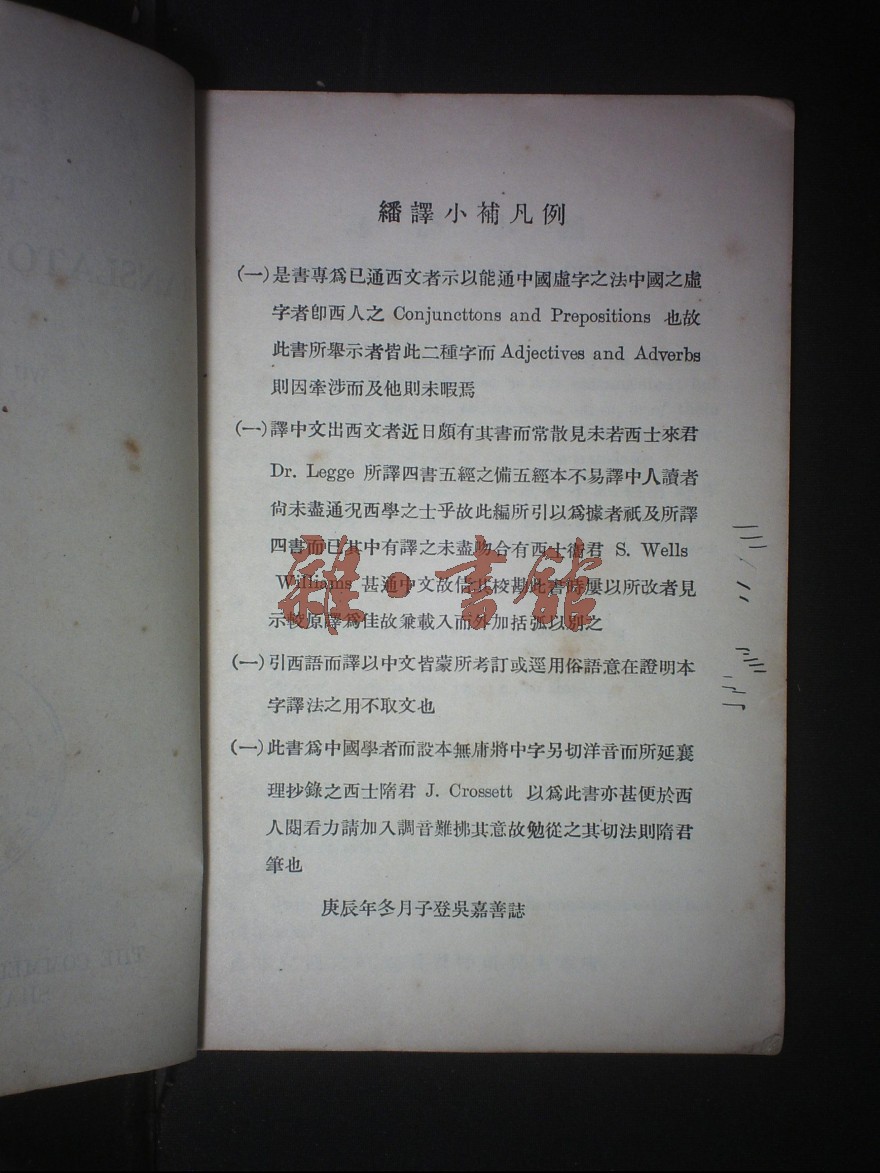 繙譯小補凡例
(一)是書專爲已通西文者示以能通中國虛字之法中國之虛
字者卽西人之 Conjuncttons and Prepositions 也故
此書所舉示者皆此二種字而 Adjectives and Adverbs
則因牽涉而及他則未暇焉
(一)譯中文出西文者近日頗有其書而常散見未若西士來君
Dr. Legge 所譯四書五經之備五經本不易譯中人讀者
尙未盡通況西學之士乎故此編所引以爲據者祇及所譯
四書而已其中有譯之未盡吻合有西士衞君 S. Wells
Williams 甚通中文故倩其校勘此書時屢以所改者見
示較原譯爲佳故兼載入而外加括弧以別之
(一)引西語而譯以中文皆蒙所考訂或逕用俗語意在證明本
字譯法之用不取文也
(一)此書爲中國學者而設本無庸將中字另切洋音而所延襄
理抄錄之西士隋君 J. Crossett 以爲此書亦甚便於西
人閱看力請加入調音難拂其意故勉從之其切法則隋君
筆也
庚辰年冬月子登吳嘉善誌
雜·書館